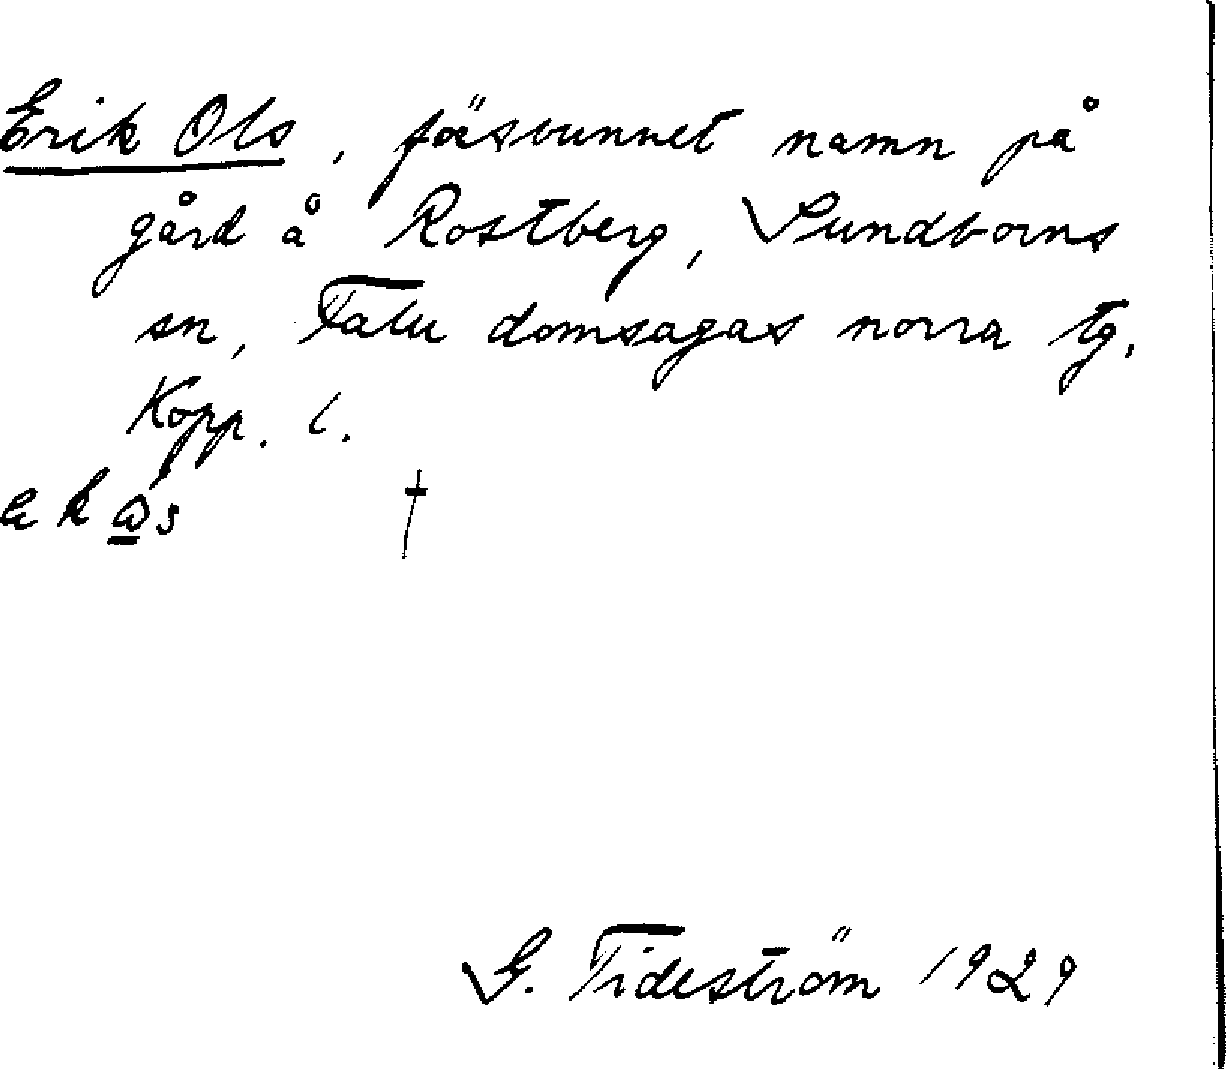 Erik Ols, försvunnet namn på
gård å Rostberg, Sundborns
sn, Falu domsagas norra tg.
Kopp. l.
†
G. Tideström 1929